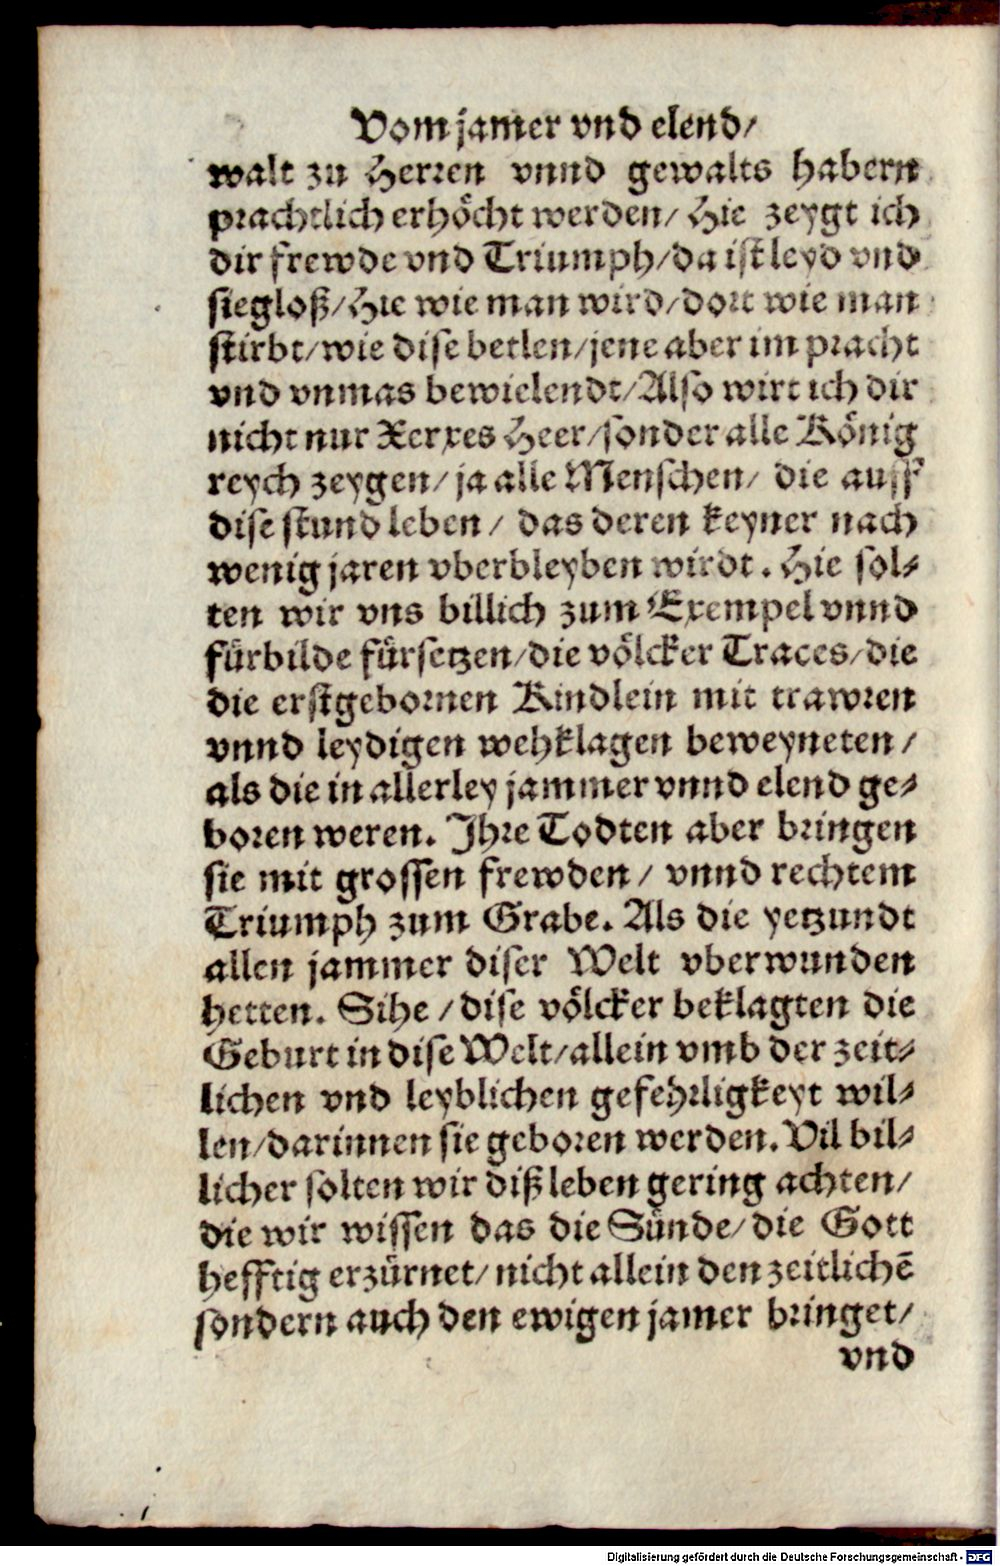 Vom jamer vnd elend/
walt zu Herren vnnd gewalts habern
prachtlich erhöcht werden/ Hie zeygt ich
dir frewde vnd Triumph/da ist leyd vnd
siegloß/Hie wie man wird/dort wie man
stirbt/wie dise betlen/jene aber im pracht
vnd vnmas bewielendt/Also wirt ich dir
nicht nur Xerxes Heer/sonder alle König
reych zeygen/ ja alle Menschen/ die auff
dise stund leben/ das deren keyner nach
wenig jaren vberbleyben wirdt. Hie sol-
ten wir vns billich zum Exempel vnnd
fürbilde fürsetzen/die völcker Traces/die
die erstgebornen Kindlein mit trawren
vnnd leydigen wehklagen beweyneten/
als die in allerley jammer vnnd elend ge-
boren weren. Ihre Todten aber bringen
sie mit grossen frewden/ vnnd rechtem
Triumph zum Grabe. Als die yetzundt
allen jammer diser Welt vberwunden
hetten. Sihe/dise völcker beklagten die
Geburt in dise Welt/allein vmb der zeit-
lichen vnd leyblichen gefehrligkeyt wil-
len/darinnen sie geboren werden. Vil bil-
licher solten wir diß leben gering achten/
die wir wissen das die Sünde/die Gott
hefftig erzürnet/nicht allein den zeitlichē
sondern auch den ewigen jamer bringet/
vnd
Digitalisierung gefördert durch die Deutsche Forschungsgemeinschaft - DFG